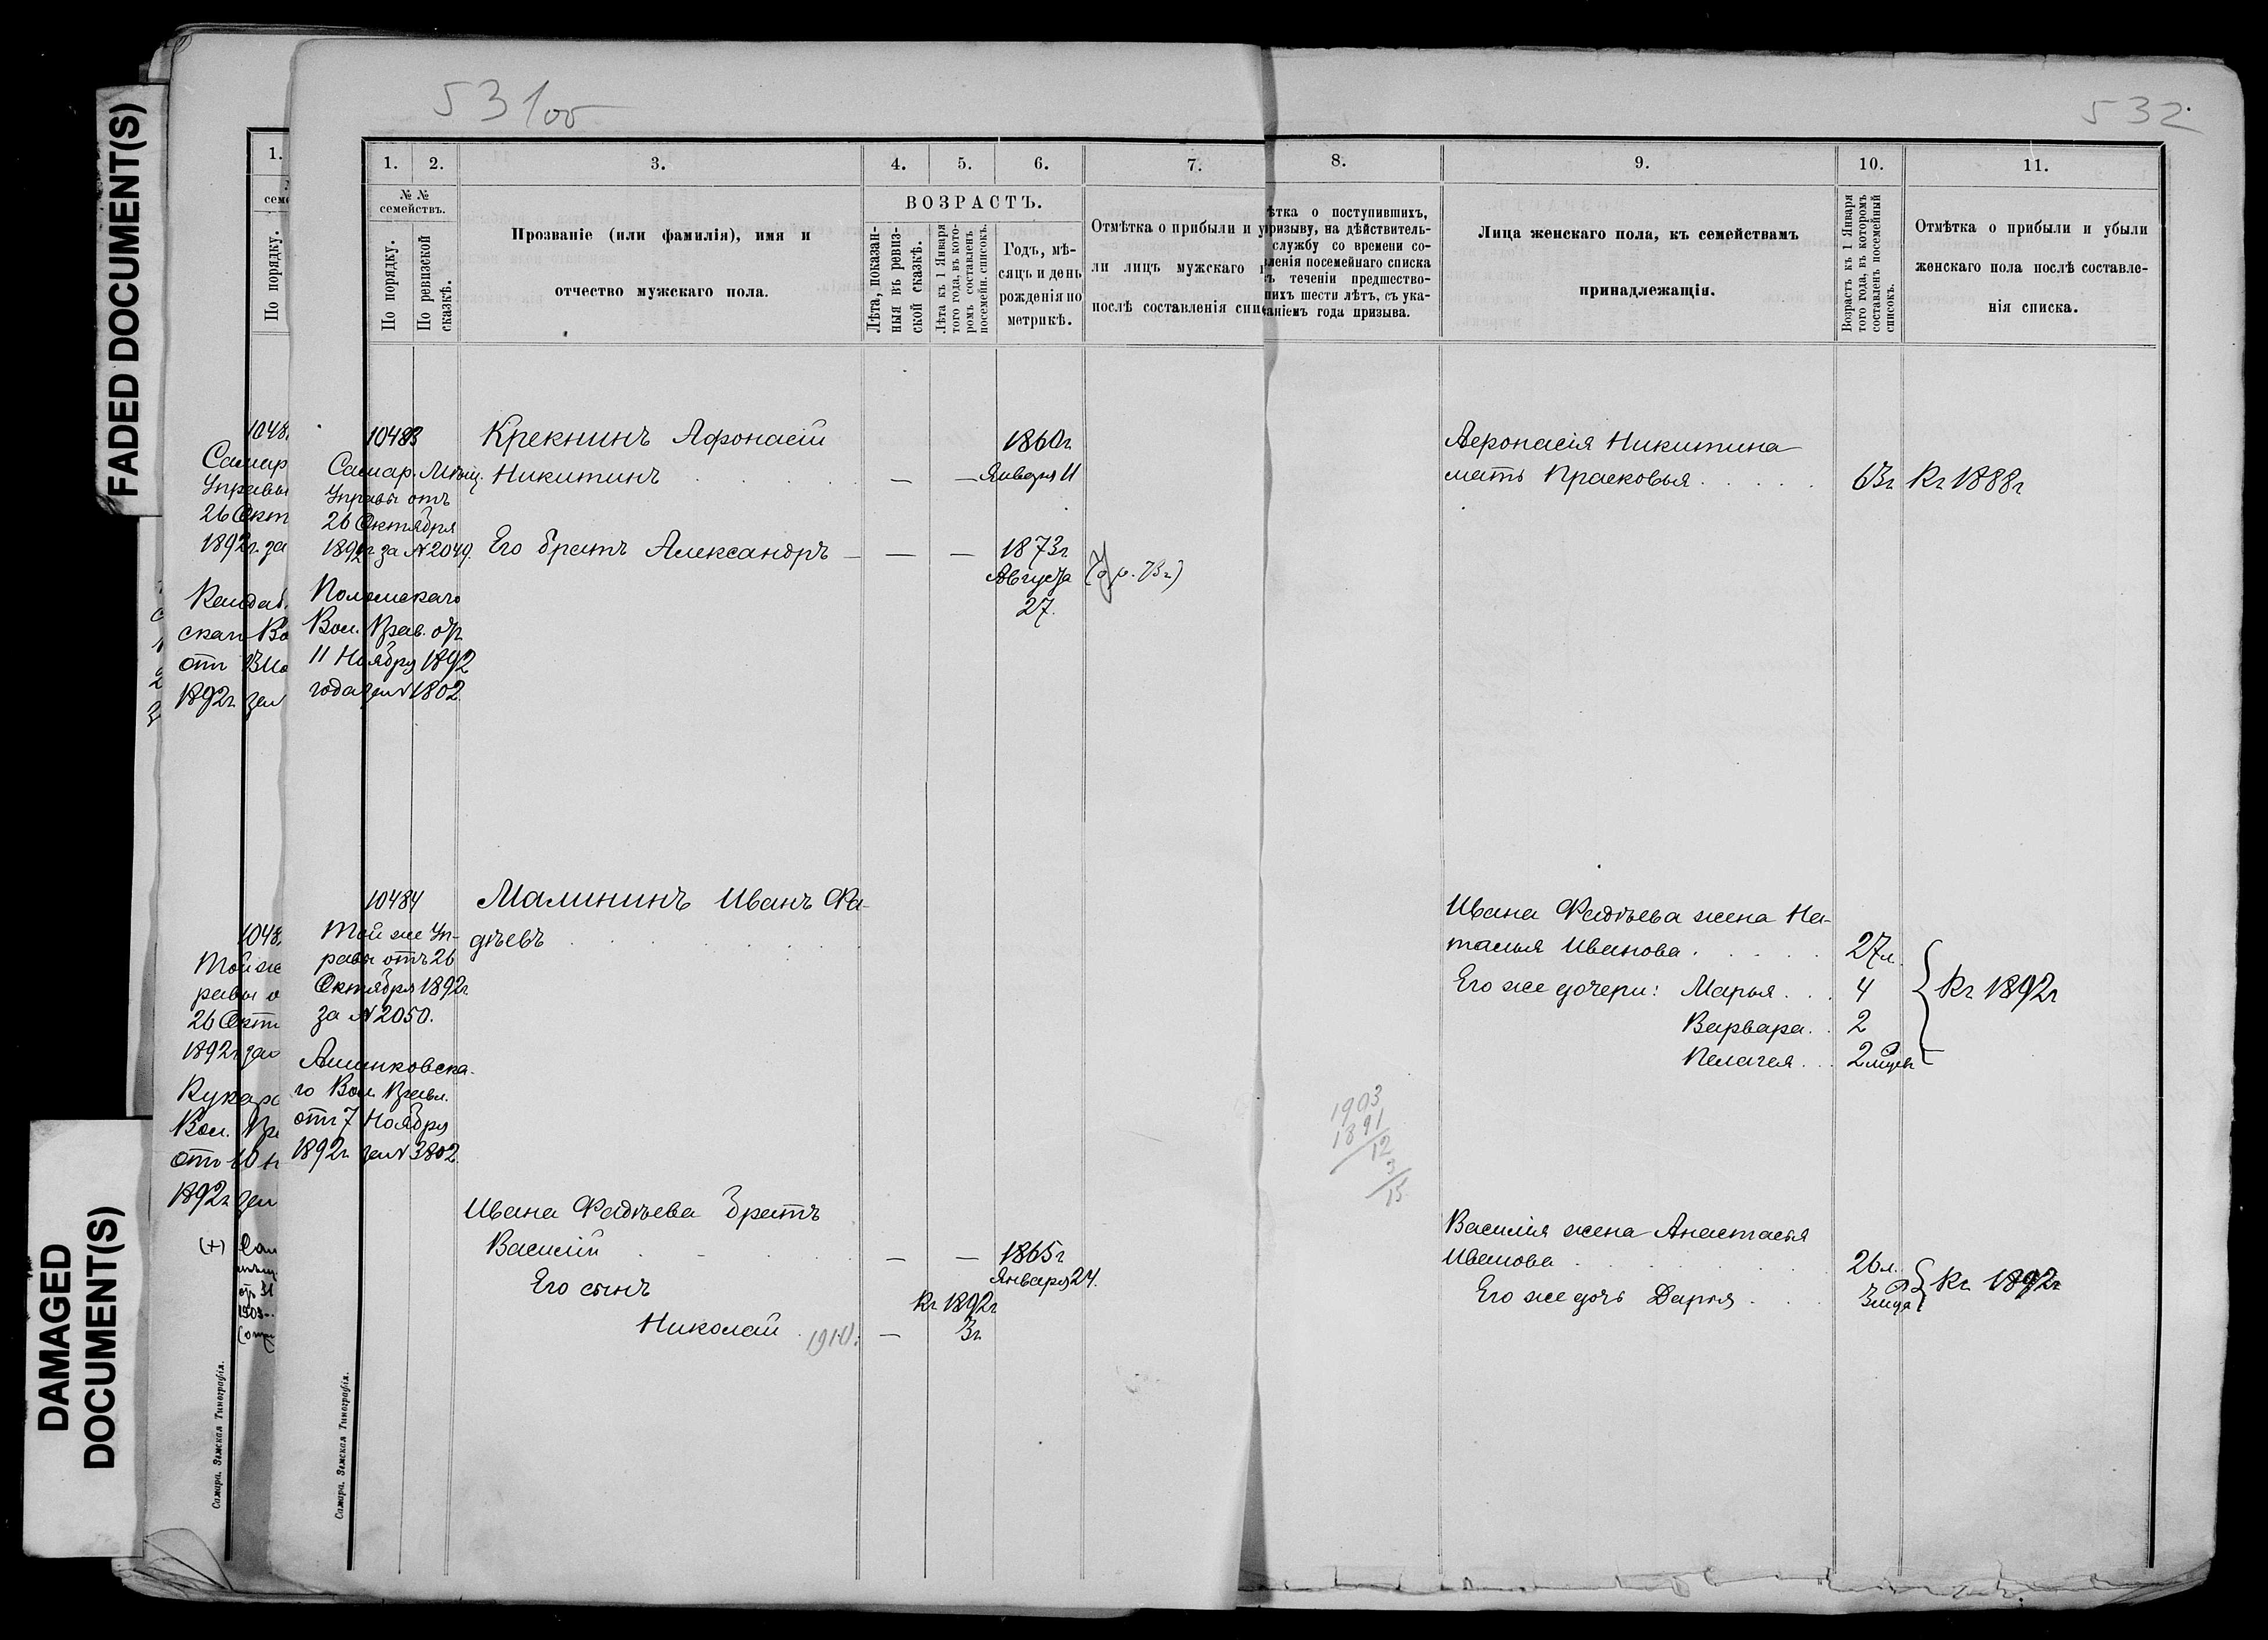 FADED DOCUMENT(S)
DAMAGED
DOCUMENT(S)
531 об
532
1.
По порядку.
1048
Самар
Управы
26 Окт
1892г. за
скаго Во
от
1892г. за
1048
Той же
равы о
26 Окт
1892г за
Кукарс
Вол. Пр
от 10 Н
1892г за
(+)
Самара. Земская Типографія.
1. 2. 3. 4. 5. 6. 7.
№ №
семействъ.
По порядку.
По ревизской
сказкѣ.
Прозваніе (или фамилія), имя и
отчество мужскаго пола.
ВОЗРАСТЪ.
Лѣта, показан-
ныя въ ревиз-
ской сказкѣ.
Лѣта къ 1 Января
того года, въ кото-
ромъ составленъ
посемейн. списокъ.
Годъ, мѣ-
сяцъ и день
рожденія по
метрикѣ.
Отмѣтка о прибыли и у
ли лицъ мужскаго п
послѣ составленія спи
10483
Самар. Мѣщ.
Управы отъ
26 Октября
1892г за №2049.
Вол. Прав. отъ
11 Ноября 1892
года за №1802.
Крекнинъ Афонасій
Никитинъ — — 1860г
Января 11
Его братъ Александръ — — — 1873г
Августа
27.
10484
Той же Уп-
равы отъ 26
Октября 1892г
за №2050.
го Вол. Правл.
отъ 7 Ноября
1892г за №3802.
Малининъ Иванъ Фа-
дѣевъ
Ивана Фадѣева братъ
Василій — — 1865г
Января 24.
Его сынъ
Кг 1892г
Николай 1910. — 3г
Самара. Земская Типографія.
8. 9. 10. 11.
ѣтка о поступившихъ,
призыву, на дѣйствитель-
службу со времени со-
вленія посемейнаго списка
въ теченіи предшество-
шихъ шести лѣтъ, съ ука-
заніемъ года призыва.
Лица женскаго пола, къ семействамъ
принадлежащія.
Возрастъ къ 1 Января
того года, въ которомъ
составленъ посемейный
списокъ.
Отмѣтка о прибыли и убыли
женскаго пола послѣ составле-
нія списка.
Афонасія Никитина
мать Прасковья 63г Кг 1888г
Ивана Фадѣева жена На-
талья Иванова 27л.
Его же дочери: Марья 4 Кг 1892г
Варвара 2
Пелагея 2 мѣсяц
1903
1891
12
3
15
Василія жена Анастасья
Иванова 26л. Кг 1892г
Его же дочь Дарья